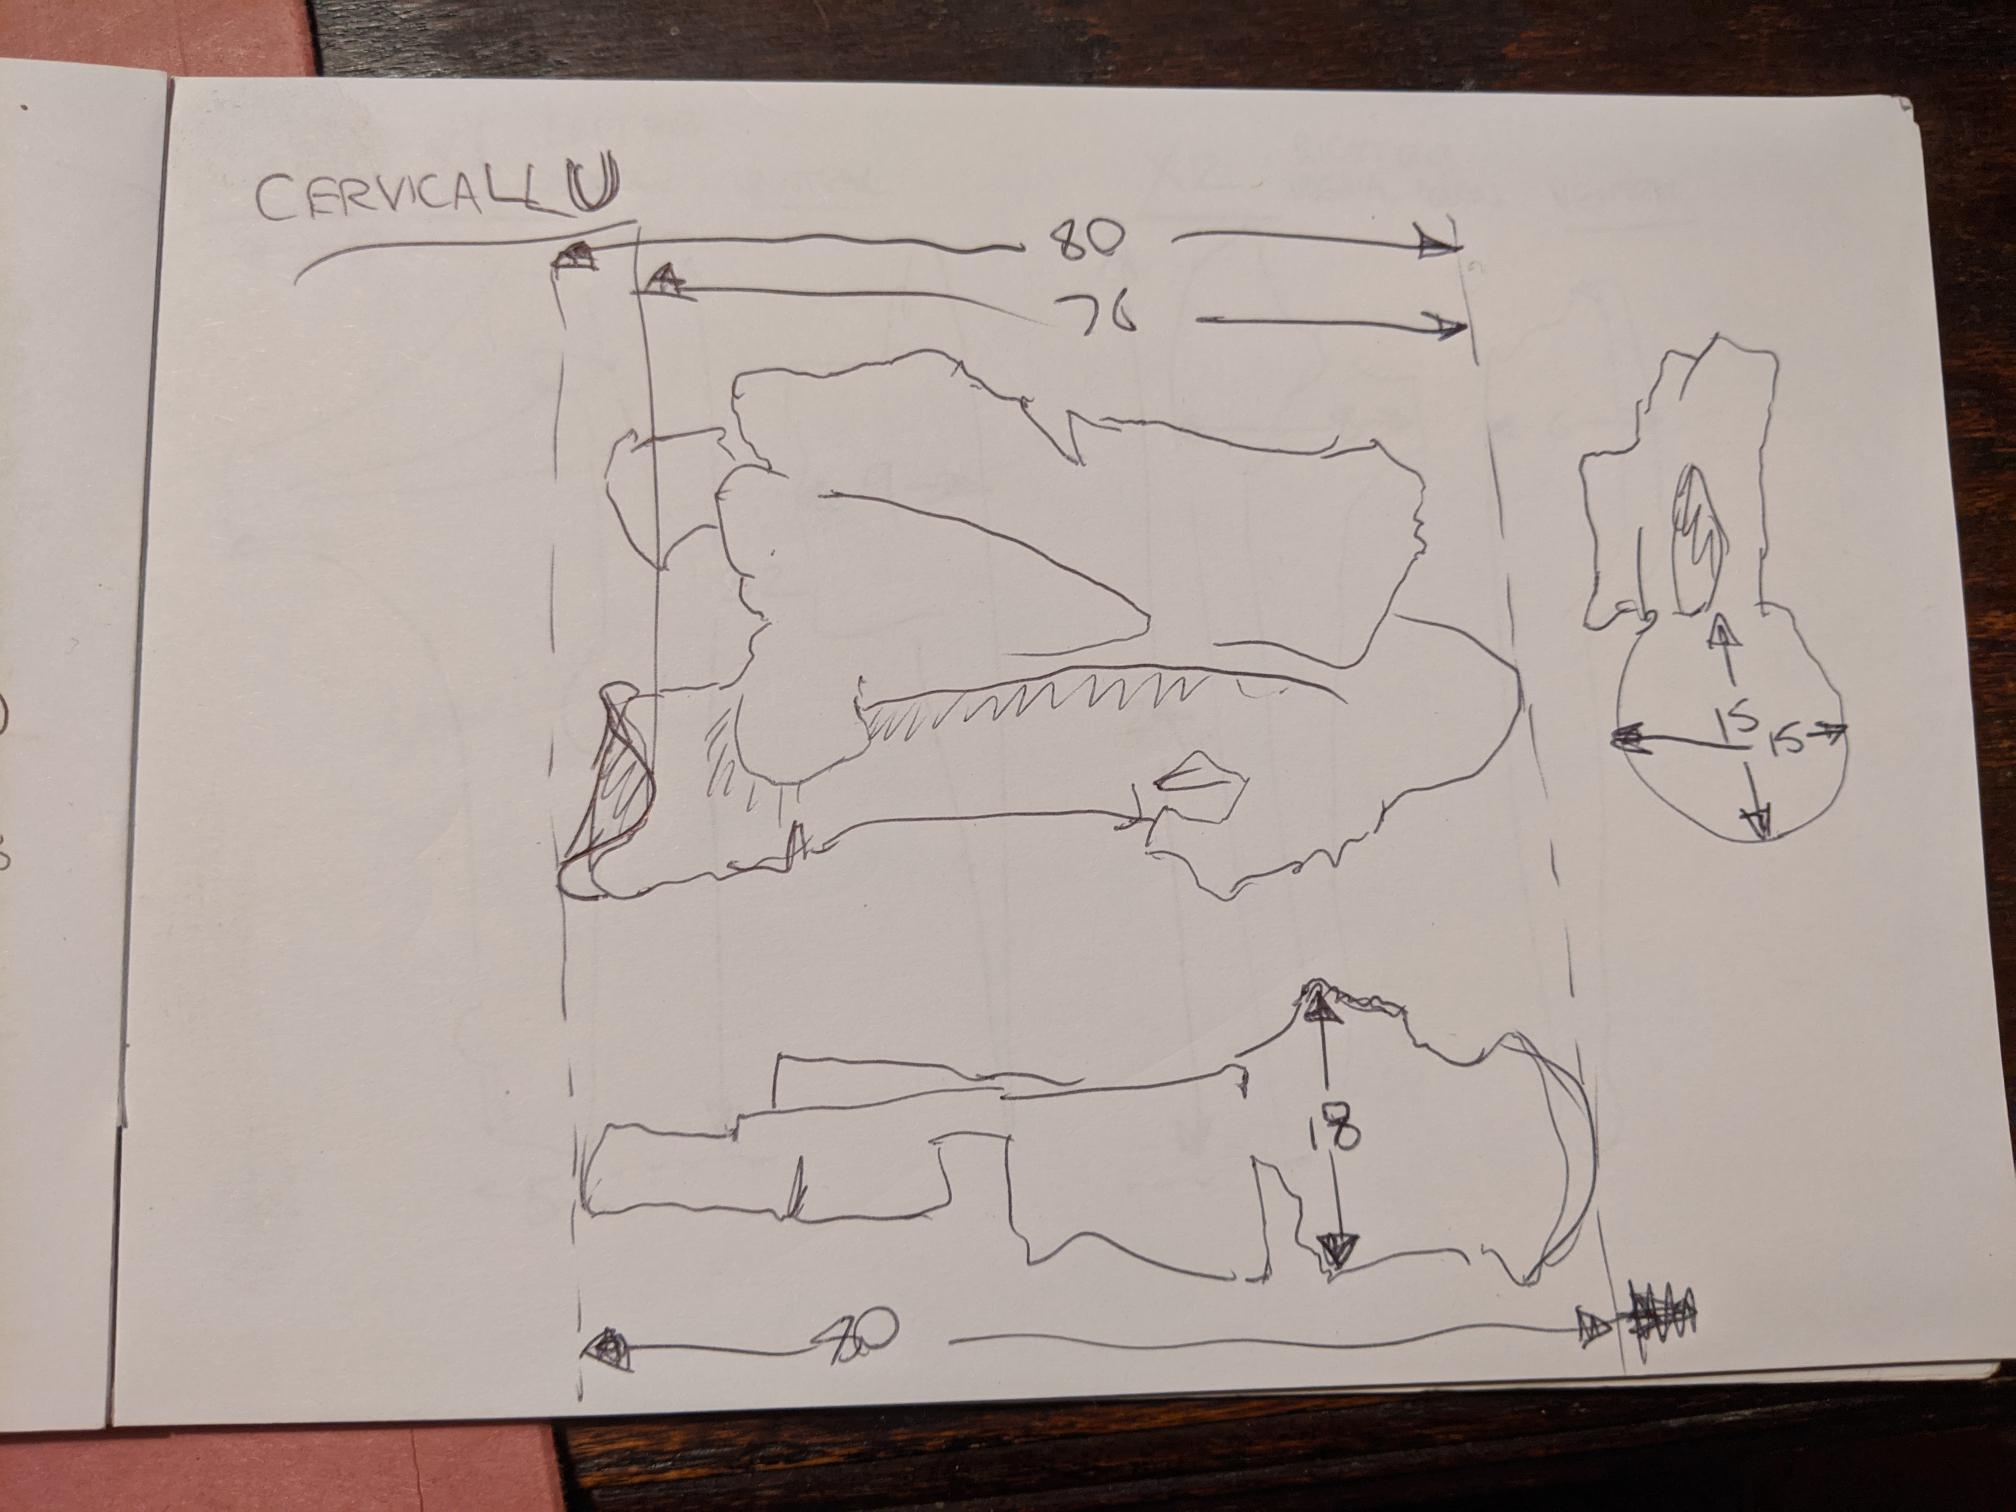 CERVICAL U
80
76
15
15
18
80